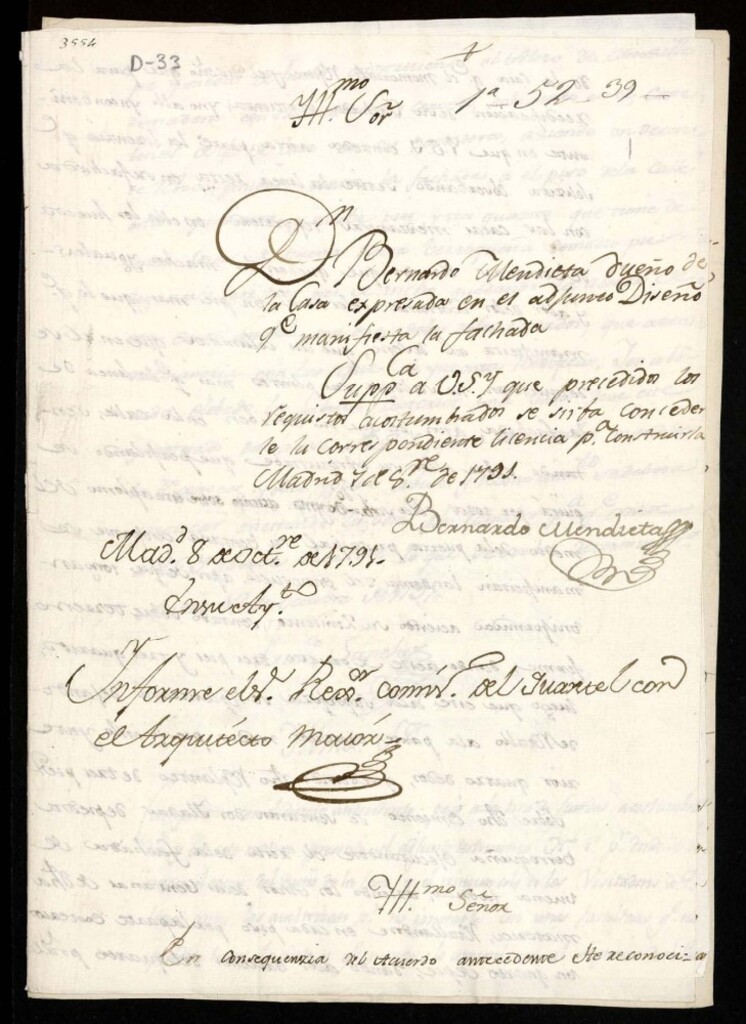 3554
D-33
Ill.mo S.or 1a 52 39
D.n Bernardo Mendieta dueño de
la Casa expresada en el adjunto Diseño
q.e manifiesta la fachada
Supp.ca a V.S.Y que precedidos los
requisitos acostumbrados se sirba conceder
le la correspondiente licencia p.a Construirla
Madrid 7 de 8.re de 1791.
Bernardo Mendieta
Mad.d 8 de Oct.re de 1791.
En su Ay.to
Informe el S.r Rex.or comis.o del Quartel con
el Arquitecto maior
Ill.mo Señor
En consequenzia del Acuerdo antecedente He reconoci-